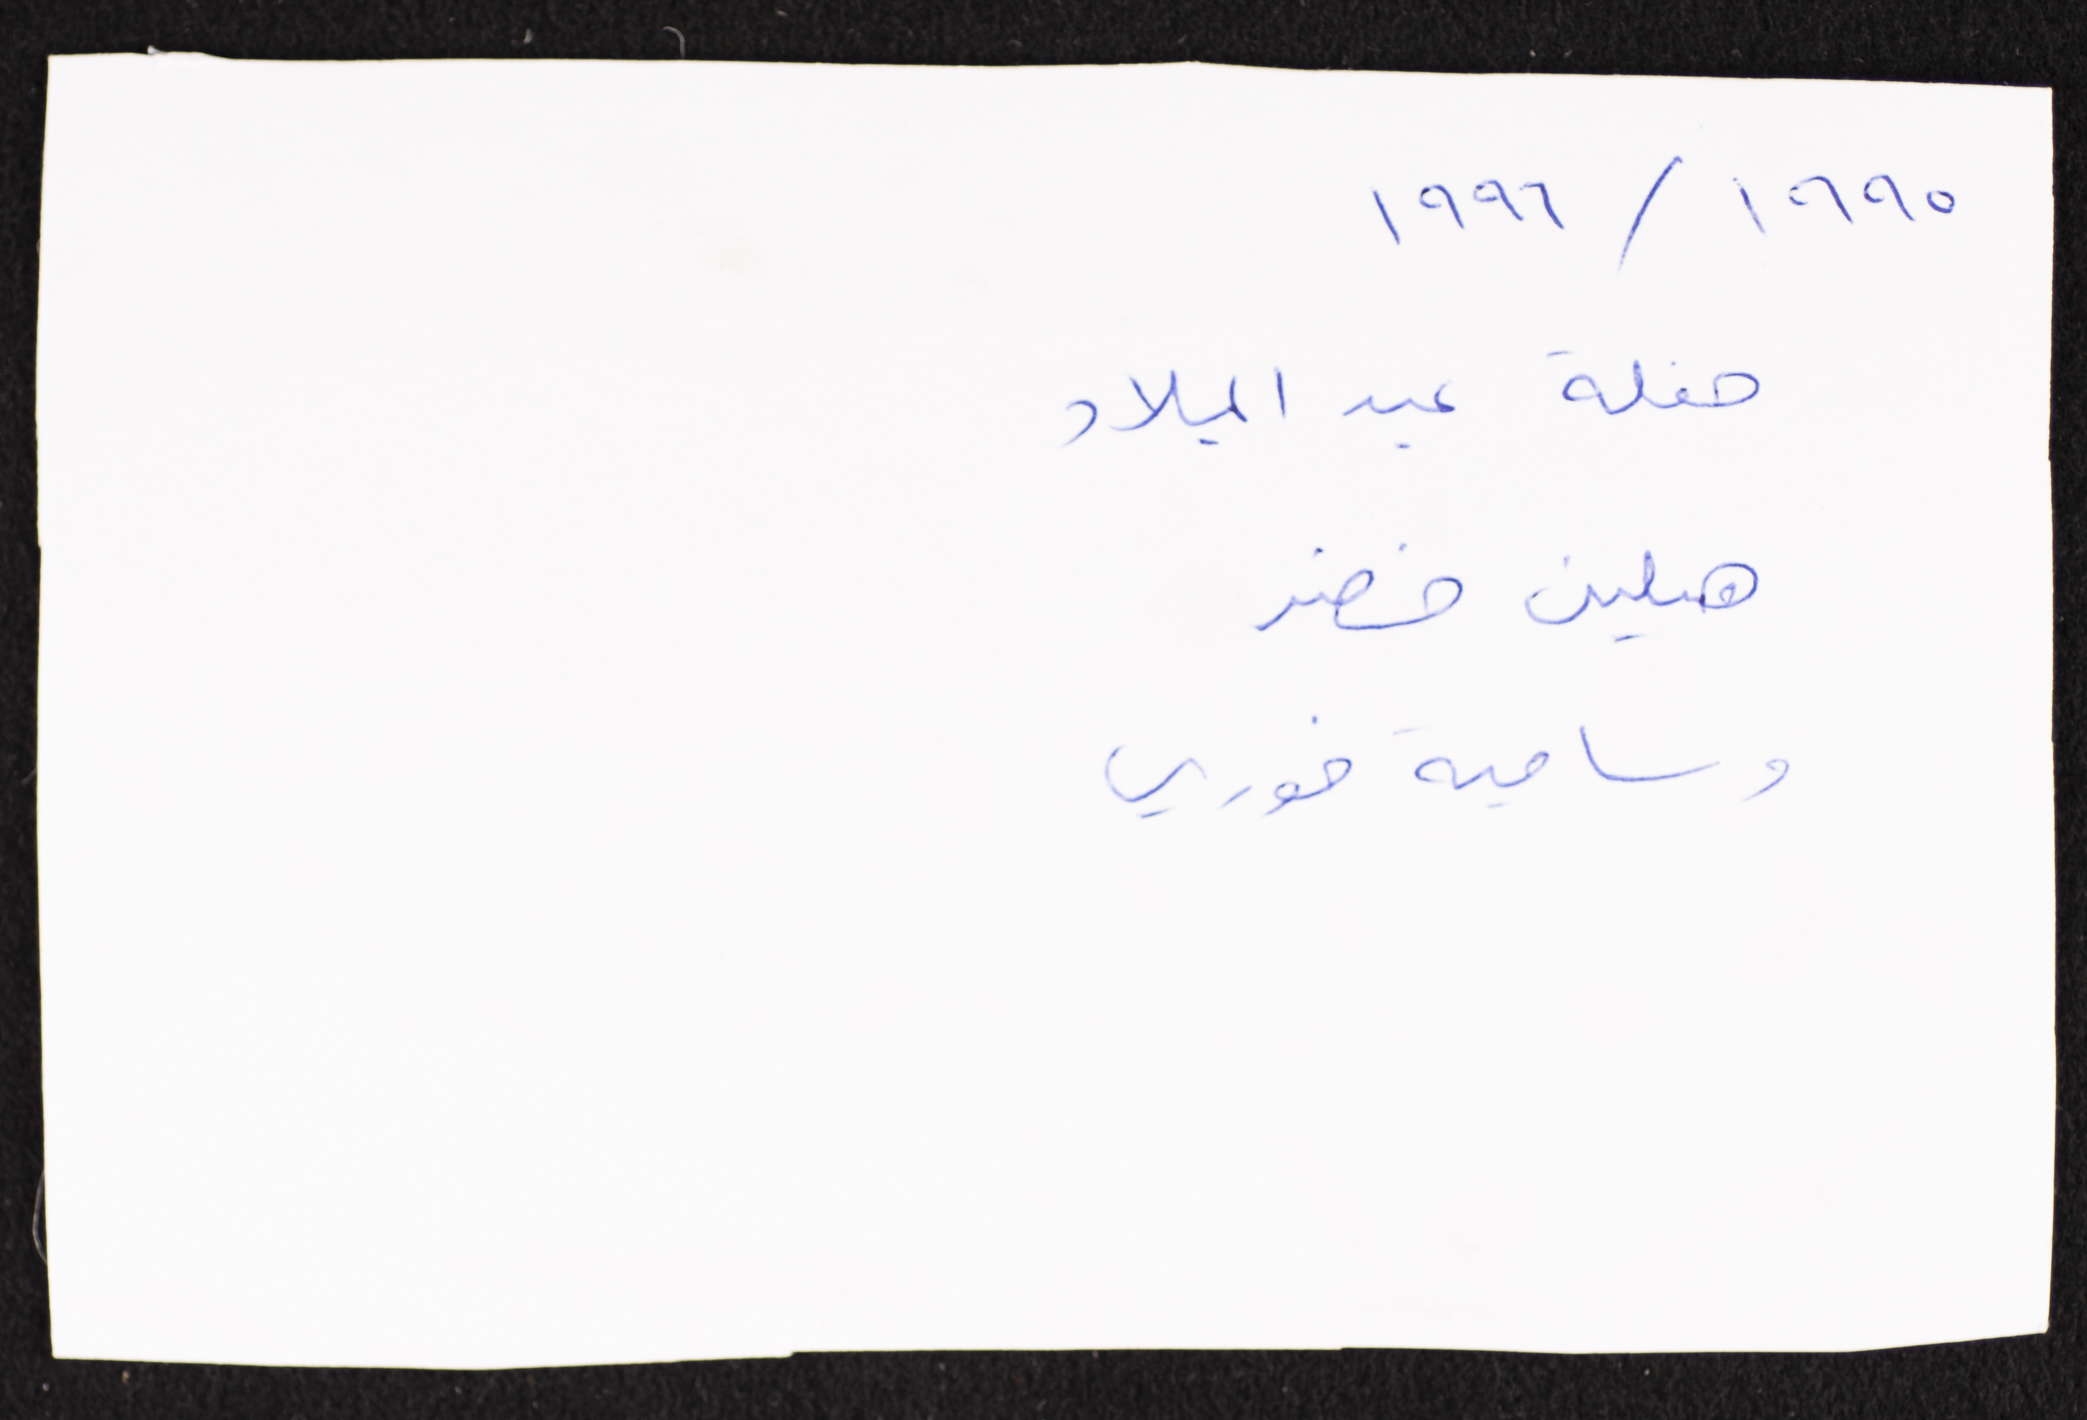 ١٩٩٥ / ١٩٩٦
حفلة عيد الميلاد
هيلين خضر
وسامية خوري